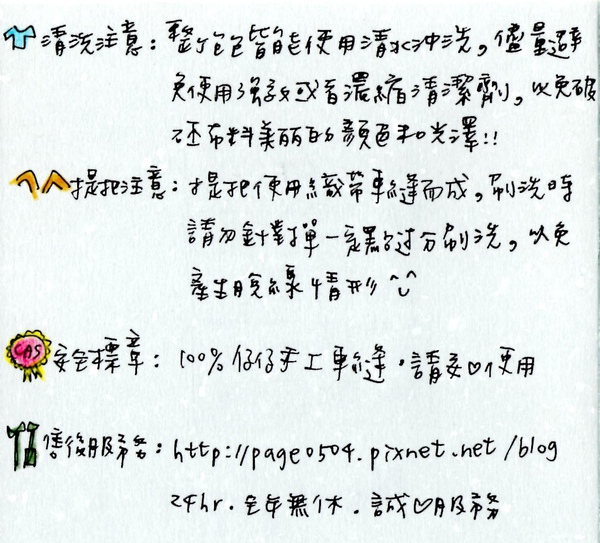 清洗注意：整個包皆能使用清水沖洗。儘量避
免使用強效或者濃縮清潔劑，以免破
坏布料美麗的顏色和光澤!!
提把注意：提把使用織帶車縫而成，刷洗時
請勿針對單一定點過分刷洗，以免
產生脫線情形^U^
CAS 安全標章：100%仔仔手工車縫．請安♡使用
售後服務：http://page0504.pixnet.net/blog
24hr．全年無休．誠♡服務